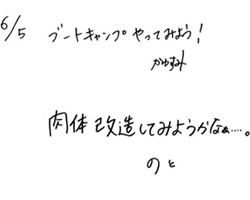 6/5 ブートキャンプやってみよう!
かゆずみ
肉体改造してみようかなぁ……。
のと